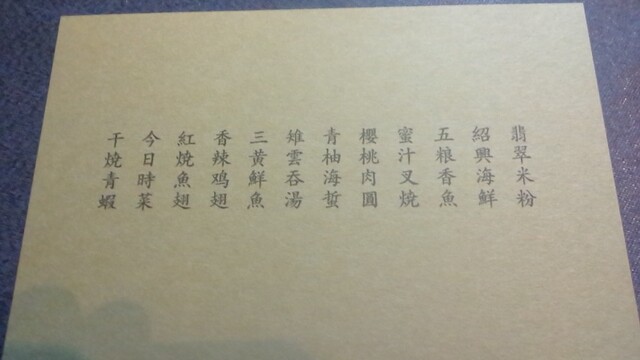 翡翠米粉
紹興海鮮
五粮香魚
蜜汁叉燒
櫻桃肉圓
青柚海蜇
雉雲吞湯
三黄鮮魚
香辣鸡翅
紅燒魚翅
今日時菜
干燒青蝦